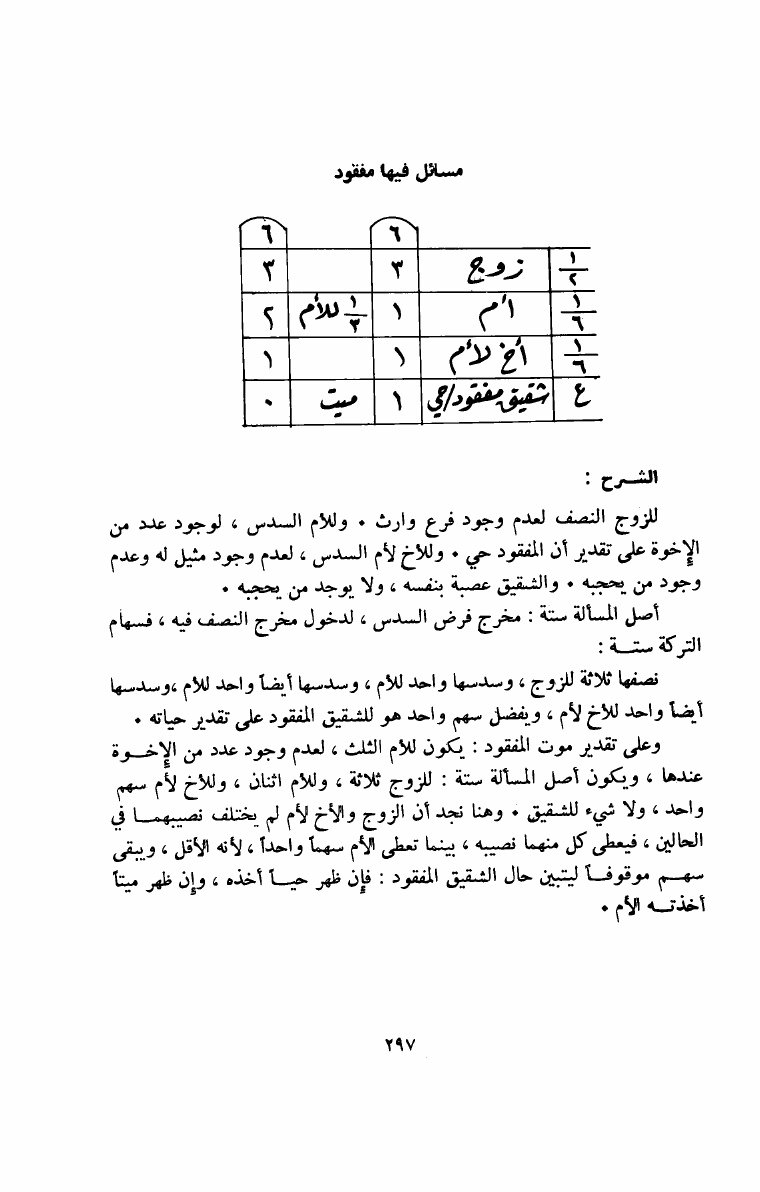 مسائل فيها مفقود
٦ ٦
١/٢ زوج ٣ ٣
١/٦ أم ١ ١/٣ للأم ٢
١/٦ أخ لأم ١ ١
ع شقيق مفقود/حي ١ ميت ٠
الشرح :
للزوج النصف لعدم وجود فرع وارث . وللأم السدس ، لوجود عدد من
الإخوة على تقدير أن المفقود حي . وللأخ لأم السدس ، لعدم وجود مثيل له وعدم
وجود من يحجبه . والشقيق عصبة بنفسه ، ولا يوجد من يحجبه .
أصل المسألة ستة : مخرج فرض السدس ، لدخول مخرج النصف فيه ، فسهام
التركة ستة :
نصفها ثلاثة للزوج ، وسدسها واحد للأم ، وسدسها أيضاً واحد للأم ،وسدسها
أيضاً واحد للأخ لأم ، ويفضل سهم واحد هو للشقيق المفقود على تقدير حياته .
وعلى تقدير موت المفقود : يكون للأم الثلث ، لعدم وجود عدد من الإخوة
عندها ، ويكون أصل المسألة ستة : للزوج ثلاثة ، وللأم اثنان ، وللأخ لأم سهم
واحد ، ولا شيء للشقيق . وهنا نجد أن الزوج والأخ لأم لم يختلف نصيبهما في
الحالين ، فيعطى كل منهما نصيبه ، بينما تعطى الأم سهماً واحداً ، لأنه الأقل ، ويبقى
سهم موقوفاً ليتبين حال الشقيق المفقود : فإن ظهر حياً أخذه ، وإن ظهر ميتاً
أخذته الأم .
٢٩٧